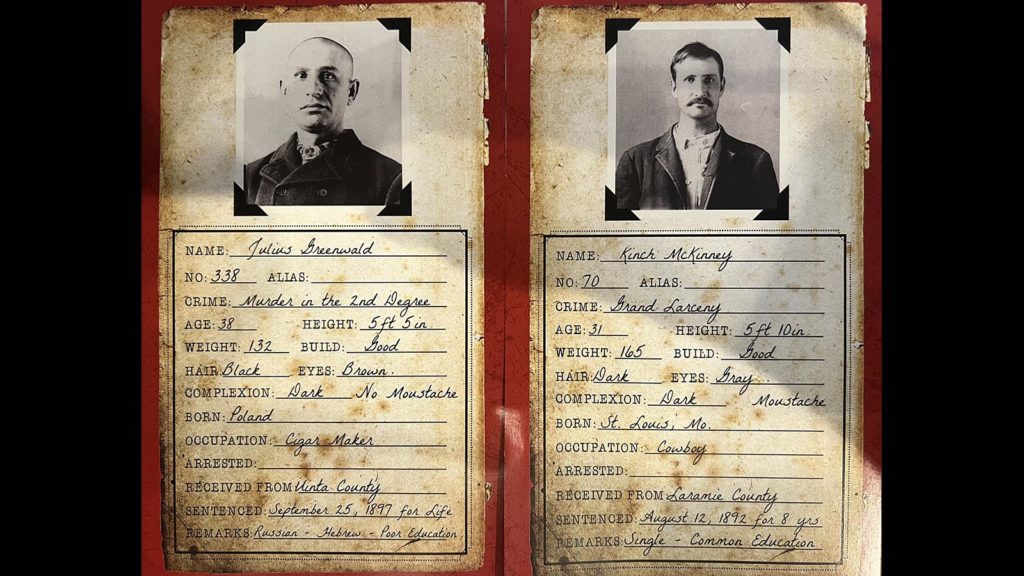 NAME: Julius Greenwald
NO: 338 ALIAS:
CRIME: Murder in the 2nd Degree
AGE: 38 HEIGHT: 5 ft 5 in
WEIGHT: 132 BUILD: Good
HAIR: Black EYES: Brown.
COMPLEXION: Dark No Moustache
BORN: Poland
OCCUPATION: Cigar Maker
ARRESTED:
RECEIVED FROM Uinta County
SENTENCED: September 25, 1897 for Life
REMARKS: Russian - Hebrew - Poor Education
NAME: Kinch McKinney
NO: 70 ALIAS:
CRIME: Grand Larceny
AGE: 31 HEIGHT: 5 ft 10 in
WEIGHT: 165 BUILD: Good
HAIR: Dark EYES: Gray.
COMPLEXION: Dark Moustache
BORN: St. Louis, Mo.
OCCUPATION: Cowboy
ARRESTED:
RECEIVED FROM Laramie County
SENTENCED: August 12, 1892 for 8 yrs
REMARKS: Single - Common Education